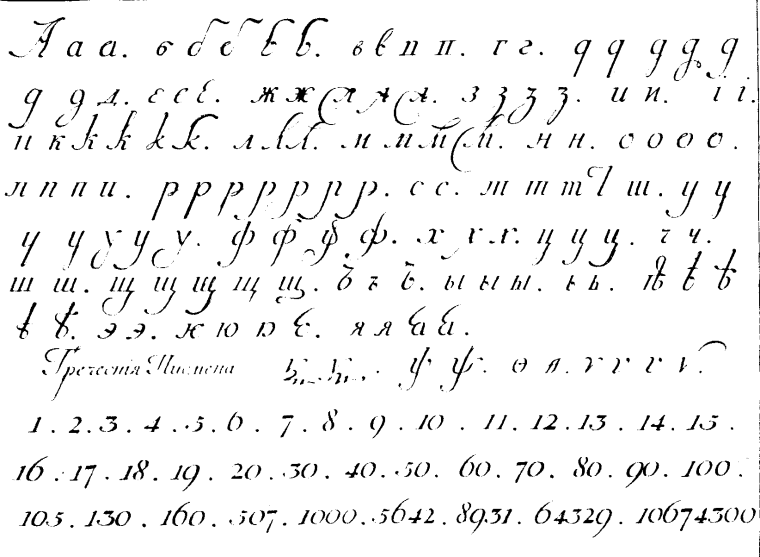 А а а. б б б б б. в в п п. г г. д д д д д
д д д. е е е. ж ж я я я. з з з з. и и. і і.
и к к к к к. л л л. м м м м. н н. о о о о.
п п п п. р р р р р р р. с с. т т т т ш. у у
у у у у у. ф ф ф ф. х х х. ц ц ц. ч ч.
ш ш. щ щ щ щ щ. ъ ъ ъ. ы ы ы. ь ь. ѣ ѣ ѣ
ѣ ѣ. э э. ю ю. я я
Греческія Писмена ѯ ѯ. ѱ ѱ. ѳ ѳ. ѵ ѵ ѵ ѵ.
1. 2. 3. 4. 5. 6. 7. 8. 9. 10. 11. 12. 13. 14. 15.
16. 17. 18. 19. 20. 30. 40. 50. 60. 70. 80. 90. 100.
105. 130. 160. 507. 1000. 5642. 8931. 64329. 10674300